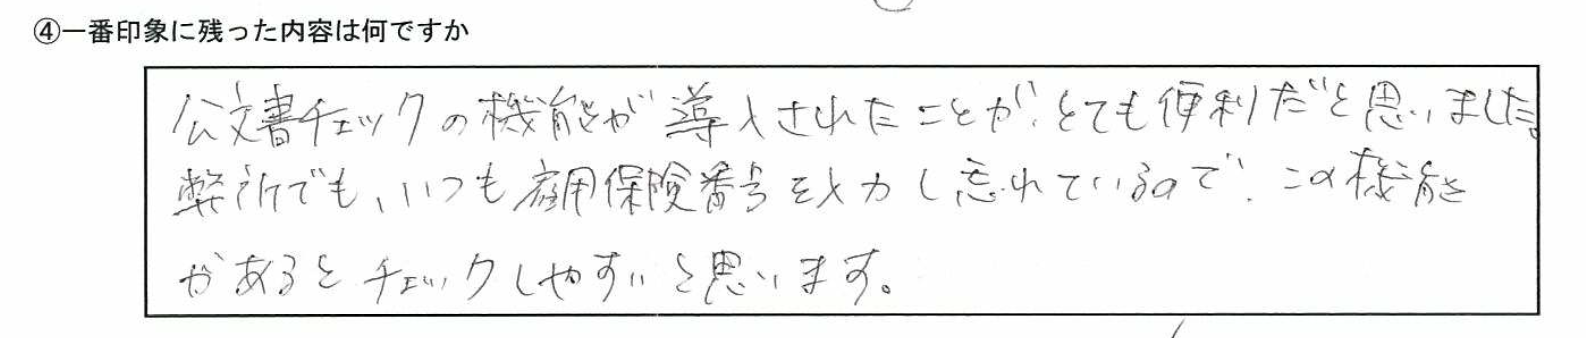 ④一番印象に残った内容は何ですか
公文書チェックの機能が導入されたことが、とても便利だと思いました。
弊所でも、いつも雇用保険番号を入力し忘れているので、この機能
があるとチェックしやすいと思います。